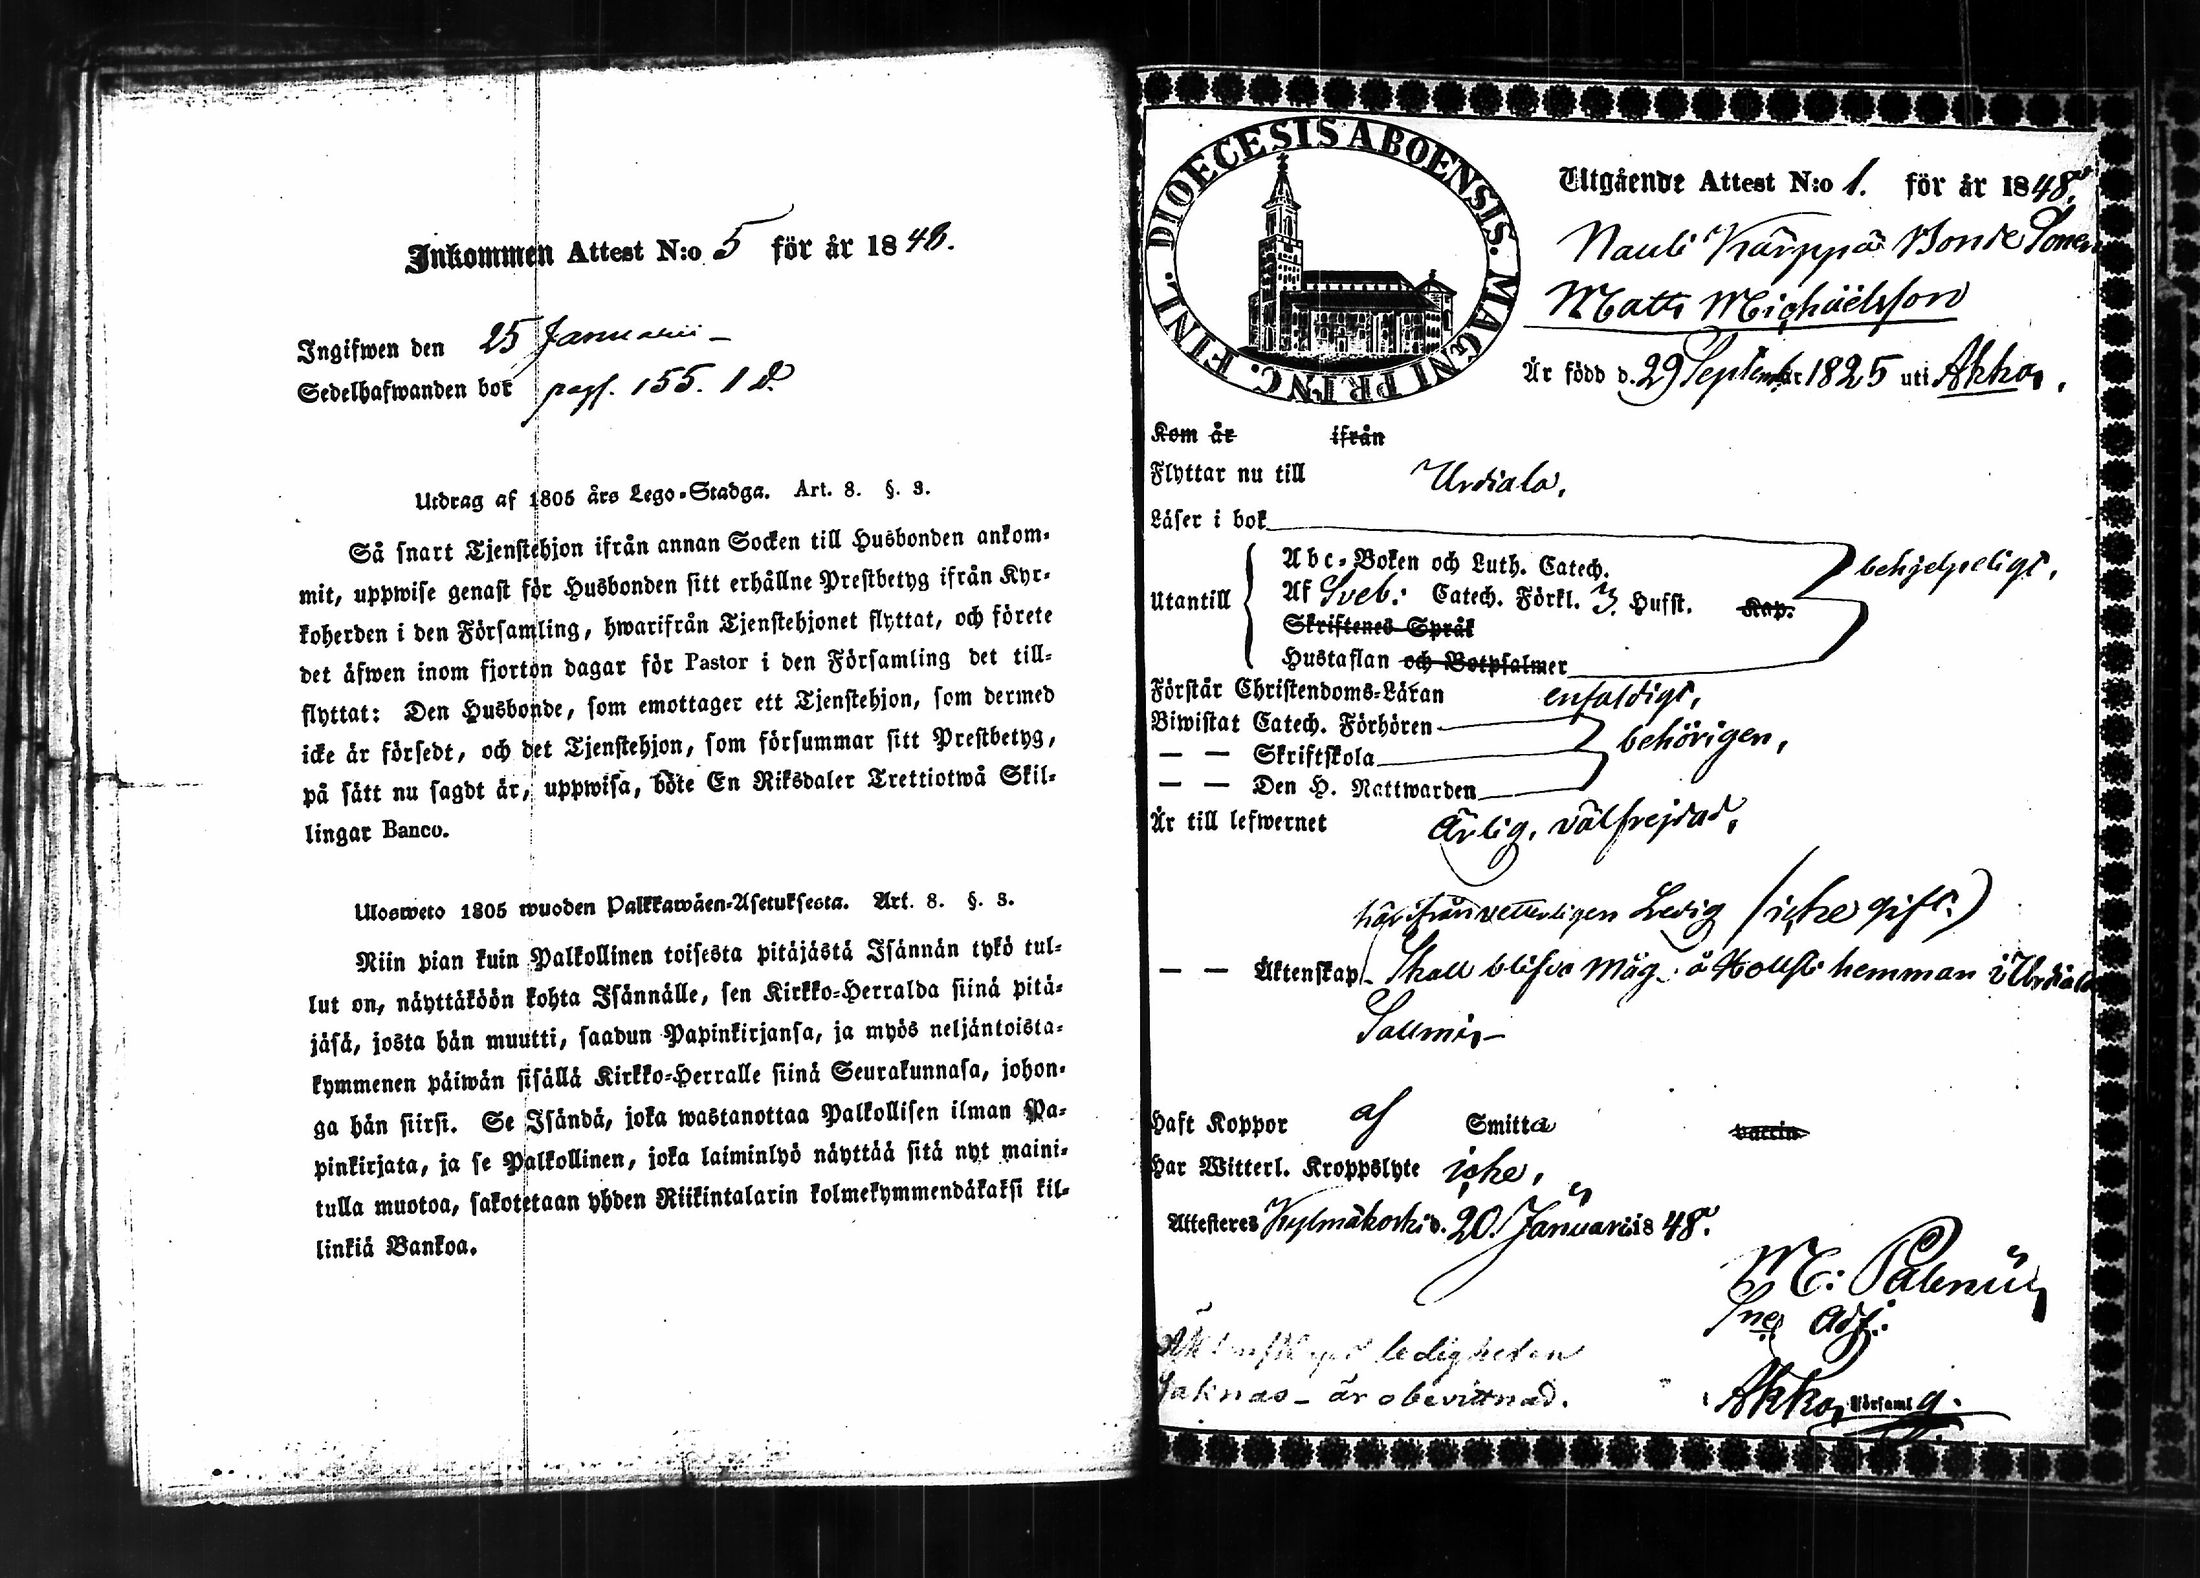 Inkommen Attest N:o 5 för år 1848.
Ingifwen den 25 Januarii –
Sedelhafwanden bor pag. 155. 1 d.
Utdrag af 1805 års Lego-Stadga. Art. 8. §. 3.
Så snart Tjenstehjon ifrån annan Socken till Husbonden ankom-
mit, uppwise genast för Husbonden sitt erhållne Prestbetyg ifrån Kyr-
koherden i den Församling, hwarifrån Tjenstehjonet flyttat, och förete
det äfwen inom fjorton dagar för Pastor i den Församling det till-
flyttat: Den Husbonde, som emottager ett Tjenstehjon, som dermed
icke är försedt, och det Tjenstehjon, som försummar sitt Prestbetyg,
på sätt nu sagdt är, uppwisa, böte En Riksdaler Trettiotwå Skil-
lingar Banco.
Ulosweto 1805 wuoden Palkkawäen-Asetuksesta. Art. 8. §. 3.
Niin pian kuin Palkollinen toisesta pitäjästä Isännän tykö tul-
lut on, näyttäköön kohta Isännälle, sen Kirkko-Herralda siinä pitä-
jäsä, josta hän muutti, saadun Papinkirjansa, ja myös neljäntoista-
kymmenen päiwän sisällä Kirkko-Herralle siinä Seurakunnasa, johon-
ga hän siirsi. Se Isändä, joka wastanottaa Palkollisen ilman Pa-
pinkirjata, ja se Palkollinen, joka laiminlyö näyttää sitä nyt maini-
tulla muotoa, sakotetaan yhden Riikintalarin kolmekymmendäkaksi kil-
linkiä Bankoa.
DIOECESIS ABOENSIS. MAGNI PRINC. FINL.
Utgående Attest N:o 1. för år 1848.
Nauli Kärppä Bonde Sonen
Matts Michaëlsson
Är född d. 29 September 1825 uti Akkas,
Kom år ifrån
Flyttar nu till Urdiala,
Läser i bok
behjelpeligt,
Abc-Boken och Luth. Catech.
Utantill Af Sveb: Catech. Förkl. 3 Hufst. Kap.
Skriftenes Språk
Hustaflan och Botpsalmer
Förstår Christendoms-Läran enfaldigt,
Biwistat Catech. Förhören
behörigen,
— — Skriftskola
— — Den H. Nattwarden
Är till lefwernet Ärlig, välfrejdad,
härifrån vetterligen Ledig (icke gift.)
— — Äktenskap Skall blifva Måg å hemman i Urdiala
Haft Koppor af Smitta vaccin
Har Witterl. Kroppslyte icke,
Attesteres Kylmäkoski d. 20. Januarii 1848.
Adj.
ledigheten
saknas – är obevittnad.
Akkas Församl g.